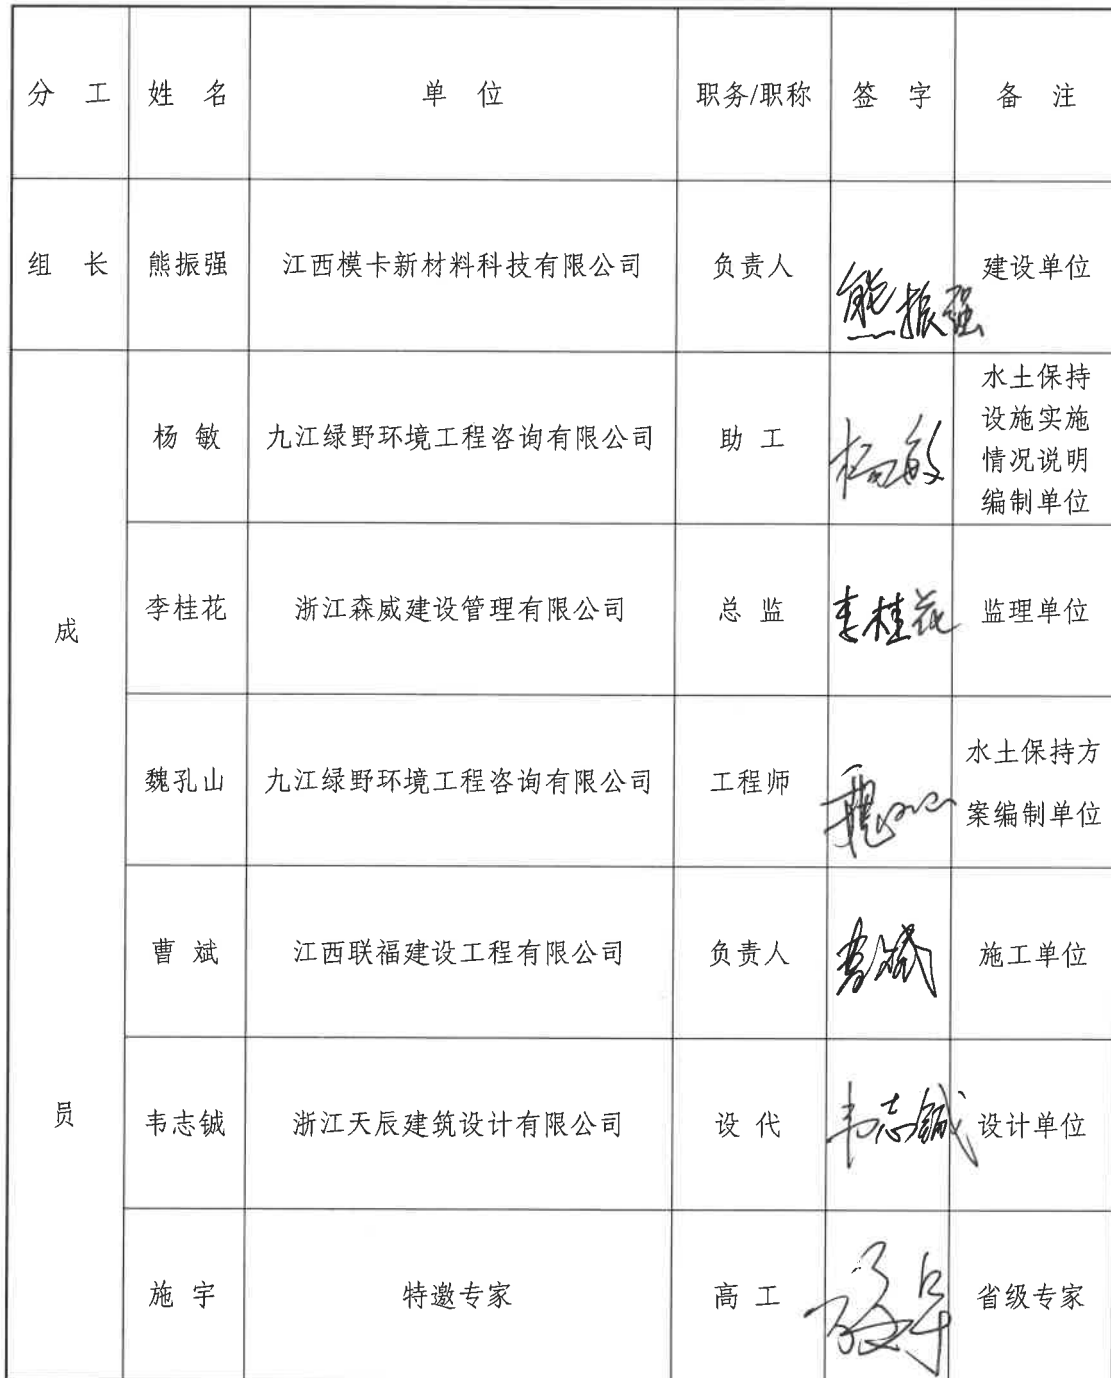 分 工 姓 名 单 位 职务/职称 签 字 备 注
组 长 熊振强 江西模卡新材料科技有限公司 负责人 熊振强 建设单位
成
员
杨 敏 九江绿野环境工程咨询有限公司 助 工 杨敏 水土保持
设施实施
情况说明
编制单位
李桂花 浙江森威建设管理有限公司 总 监 李桂花 监理单位
魏孔山 九江绿野环境工程咨询有限公司 工程师 水土保持方
案编制单位
曹 斌 江西联福建设工程有限公司 负责人 曹斌 施工单位
韦志铖 浙江天辰建筑设计有限公司 设 代 韦志铖 设计单位
施 宇 特邀专家 高 工 省级专家